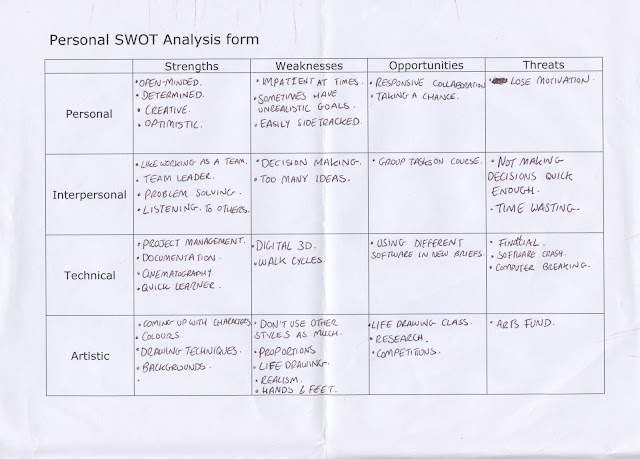 Personal SWOT Analysis form
Strengths
Weaknesses
Opportunities
Threats
Personal
• OPEN-MINDED.
• DETERMINED.
• CREATIVE.
• OPTIMISTIC.
• IMPATIENT AT TIMES.
• SOMETIMES HAVE
UNREALISTIC GOALS.
• EASILY SIDETRACKED.
• RESPONSIVE COLLABORATION
• TAKING A CHANCE.
LOSE MOTIVATION.
Interpersonal
• LIKE WORKING AS A TEAM.
• TEAM LEADER.
• PROBLEM SOLVING.
• LISTENING TO OTHERS.
• DECISION MAKING.
• TOO MANY IDEAS.
• GROUP TASKS ON COURSE.
• NOT MAKING
DECISIONS QUICK
ENOUGH.
• TIME WASTING.
Technical
• PROJECT MANAGEMENT.
• DOCUMENTATION.
• CINEMATOGRAPHY.
• QUICK LEARNER.
• DIGITAL 3D.
• WALK CYCLES.
• USING DIFFERENT
SOFTWARE IN NEW BRIEFS.
• SOFTWARE CRASH.
• COMPUTER BREAKING.
Artistic
• COMING UP WITH CHARACTERS
• COLOURS.
• DRAWING TECHNIQUES.
• BACKGROUNDS.
•
• DON'T USE OTHER
STYLES AS MUCH.
• PROPORTIONS
• LIFE DRAWING.
• REALISM.
• HANDS & FEET.
• LIFE DRAWING CLASS.
• RESEARCH.
• COMPETITIONS.
• ARTS FUND.